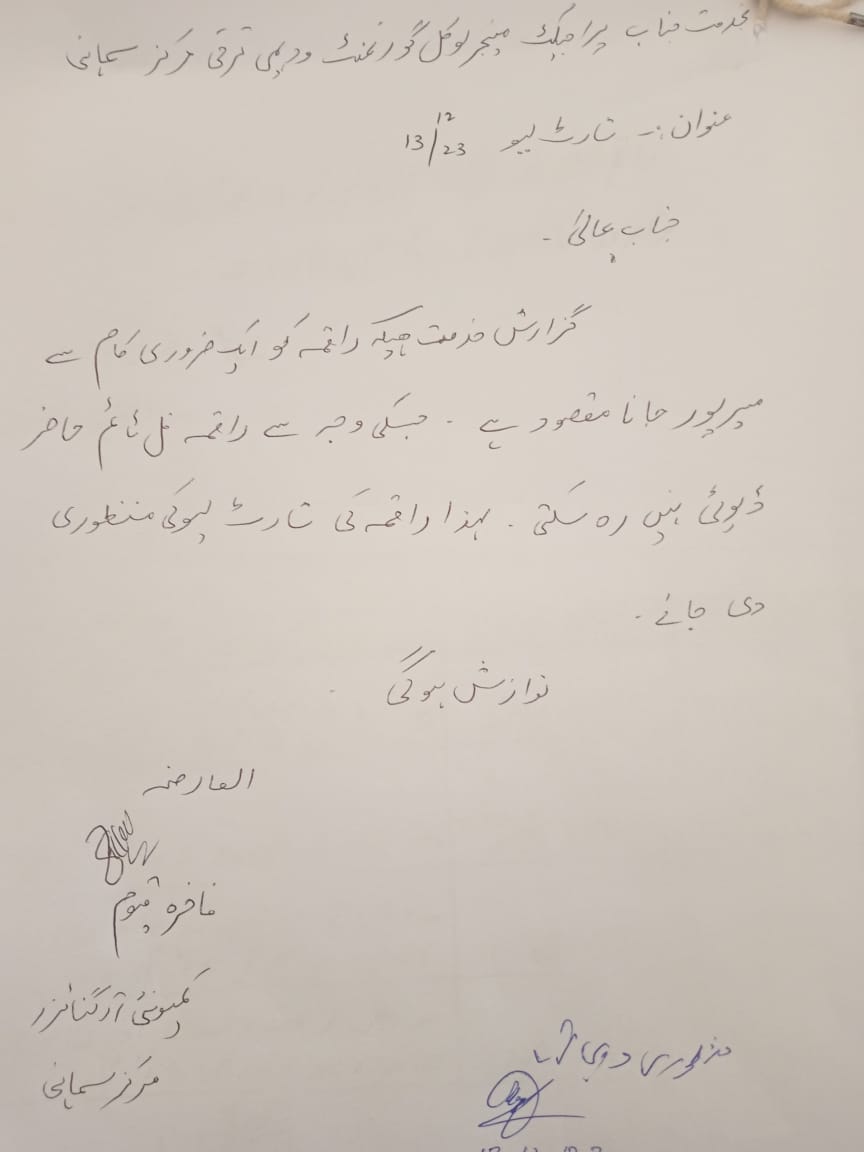 بخدمت جناب پراجیکٹ مینجر لوکل گورنمنٹ و دیہی ترقی مرکز سماہنی
عنوان :- شارٹ لیو 13/12/23
جناب عالیٰ -
گزارش خدمت ہیکہ راقمہ کو ایک ضروری کام سے
میرپور جانا مقصود ہے - جسکی وجہ سے راقمہ فل ٹائم حاضر
ڈیوٹی نہیں رہ سکتی - لہذا راقمہ کی شارٹ لیو کی منظوری
دی جائے -
نوازش ہوگی
العارضہ
قیوم
کمیونٹی آرگنائزر
مرکز سماہنی
منظوری دی